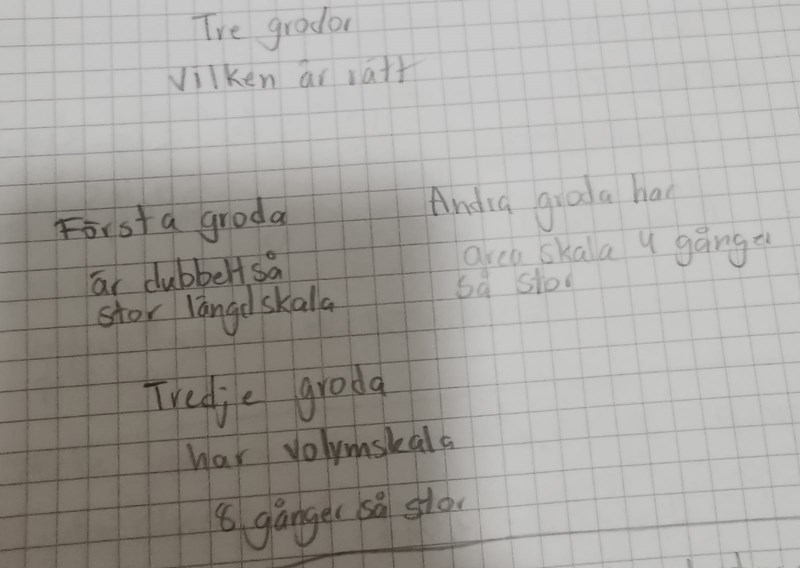 Tre grodor
Vilken är rätt
Första groda
är dubbelt så
stor längdskala
Andra groda har
area skala 4 gånger
så stor
Tredje groda
har volymskala
8 gånger så stor